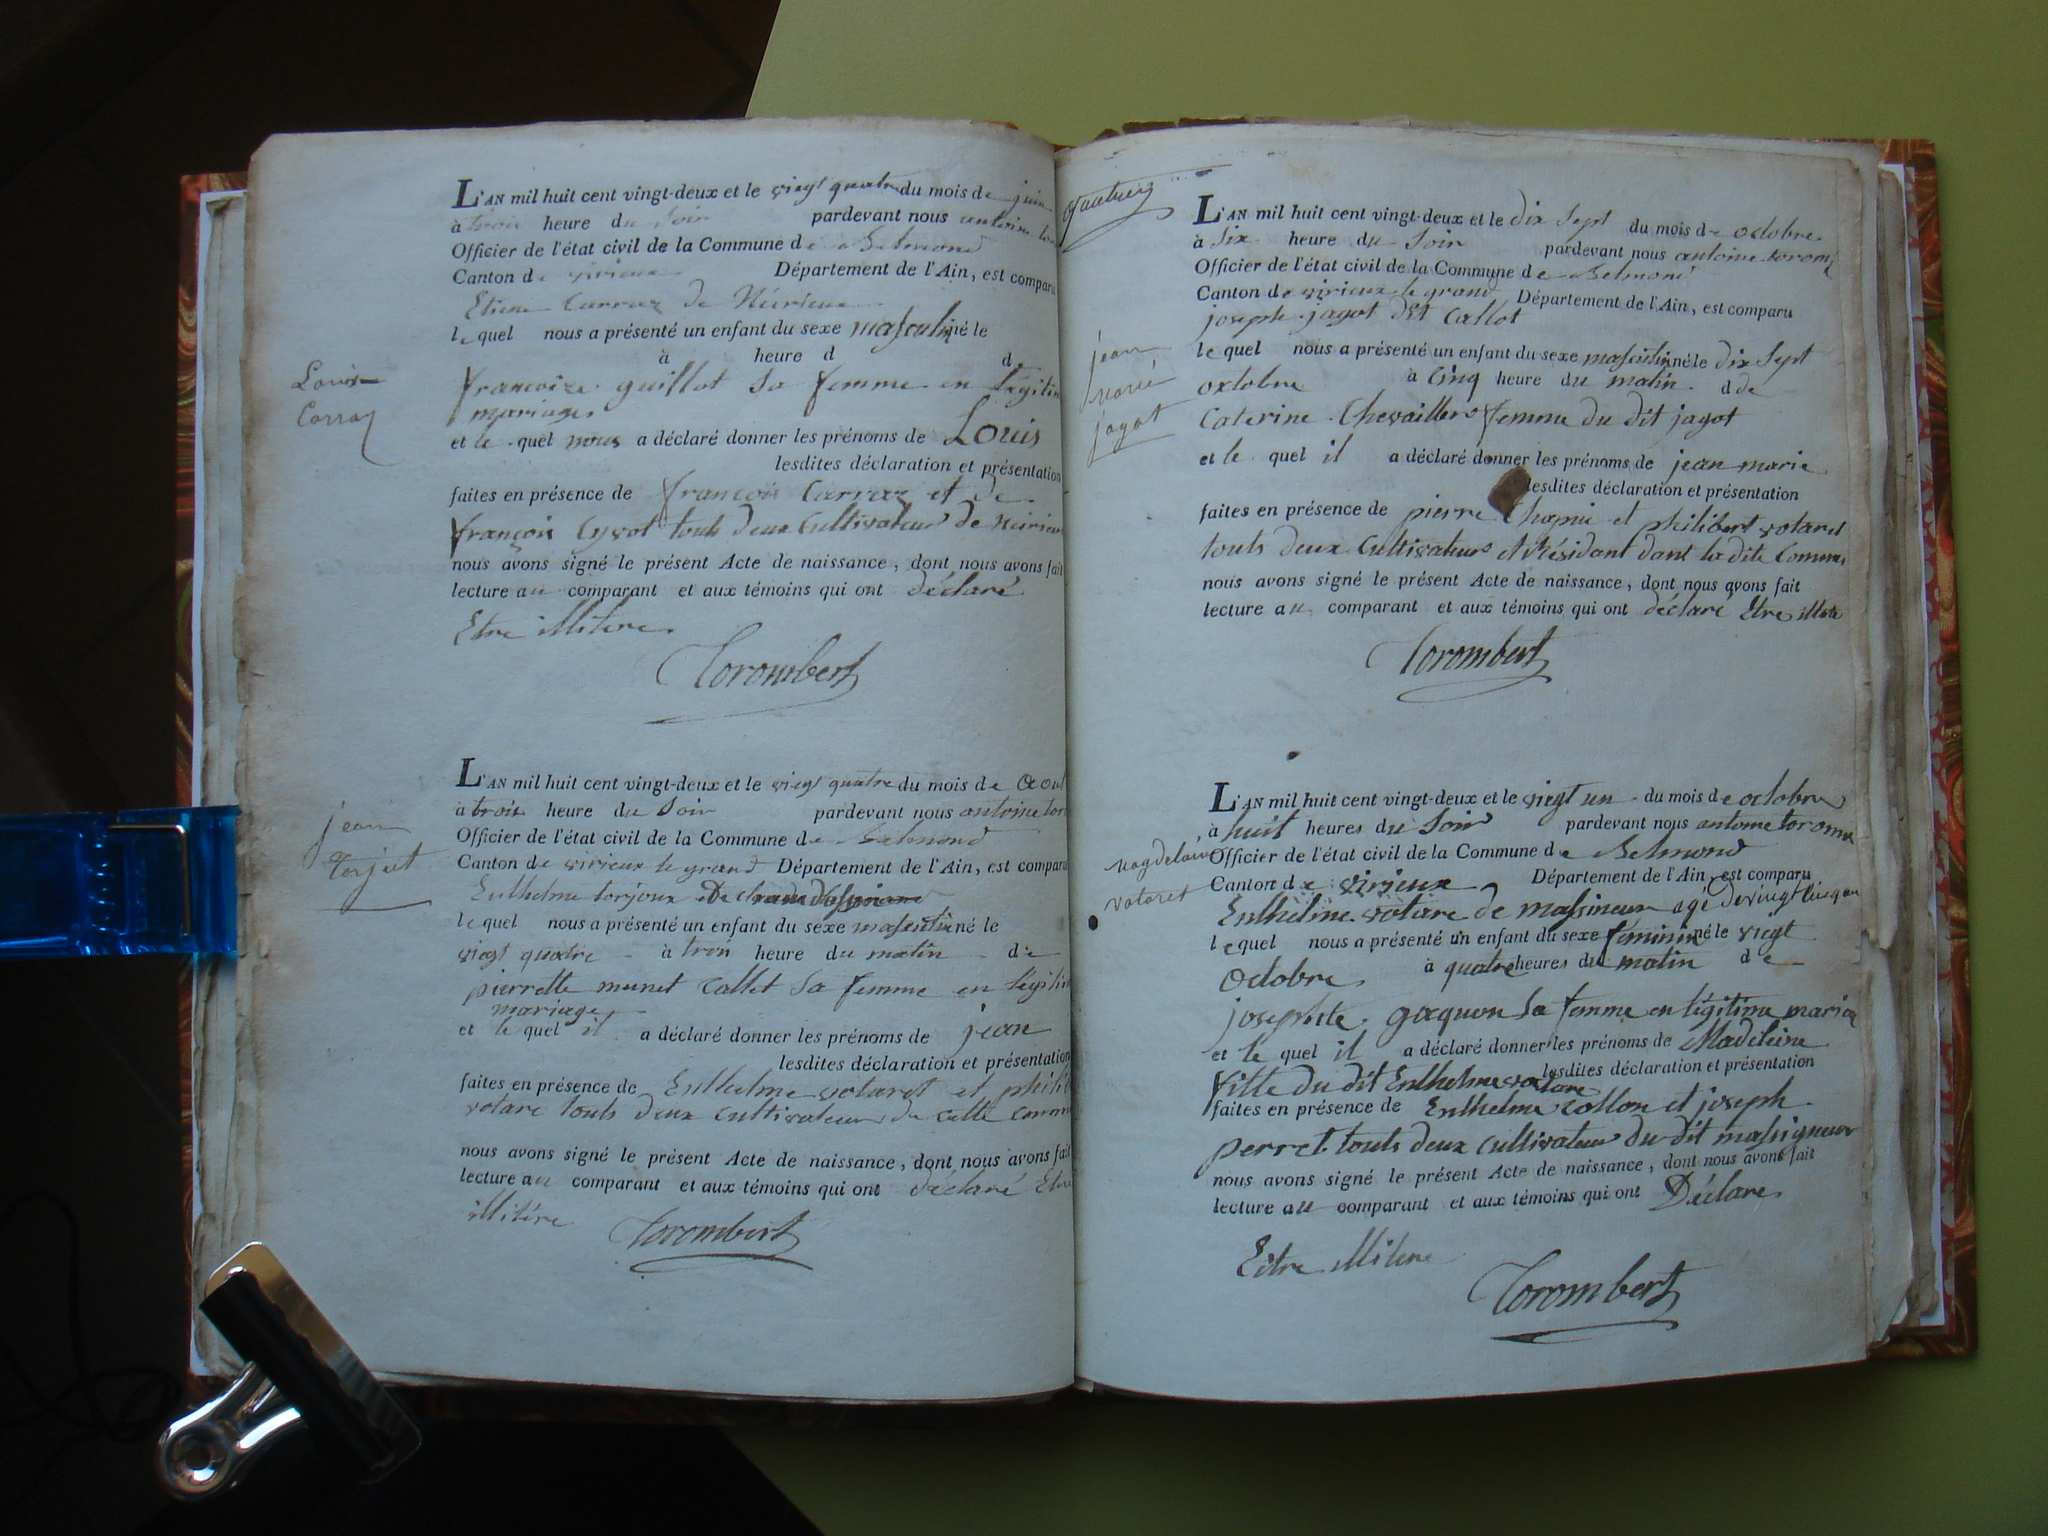 L'AN mil huit cent vingt-deux et le vingt quatre du mois de juin
à trois heure du soir pardevant nous antoine
Officier de l'état civil de la Commune de Belmond
Canton de virieux Département de l'Ain, est comparu
Etiene Carraz de
le quel nous a présenté un enfant du sexe masculin né le
à heure d d
Louis
Carraz
francoize guillot sa femme en legitim
mariage
et le quel nous a déclaré donner les prénoms de Louis
lesdites déclaration et présentation
faites en présence de françois Carraz et de
françois Cyvot touts deux Cultivateur de
nous avons signé le présent Acte de naissance, dont nous avons fait
lecture au comparant et aux témoins qui ont déclaré
Etre illitere
Torombert
L'AN mil huit cent vingt-deux et le viegt quatre du mois de aout
à trois heure du soir pardevant nous antoine tor
Officier de l'état civil de la Commune de Belmond
jean
Canton de virieux le grand Département de l'Ain, est comparu
Enthelme torjoux
le quel nous a présenté un enfant du sexe masculin né le
viegt quatre à trois heure du matin de
pierrette munet Callet sa femme en légitim
mariage
et le quel il a déclaré donner les prénoms de jean
lesdites déclaration et présentation
faites en présence de Enthelme votaret et phili
votare touts deux cultivateur de cette comm
nous avons signé le présent Acte de naissance, dont nous avons fait
lecture au comparant et aux témoins qui ont déclaré Etre
illitére
Torombert
L'AN mil huit cent vingt-deux et le dix sept du mois de octobre
à six heure du soir pardevant nous antoine torom
Officier de l'état civil de la Commune de Belmond
Canton de virieux le grand Département de l'Ain, est comparu
joseph jagot dit Callot
jean
marie
jagot
le quel nous a présenté un enfant du sexe masculin né le dix sept
octobre à cinq heure du matin d de
Caterine Chevaillier femme du dit jagot
et le quel il a déclaré donner les prénoms de jean marie
lesdites déclaration et présentation
faites en présence de pierre Chapuie et philibert votaret
touts deux Cultivateurs et Résidant dant la dite Commu
nous avons signé le présent Acte de naissance, dont nous avons fait
lecture au comparant et aux témoins qui ont déclaré Etre
Torombert
L'AN mil huit cent vingt-deux et le viegt un du mois de octobre
à huit heures du soir pardevant nous antoine torom
magdelaine
votaret
Officier de l'état civil de la Commune de Belmond
Canton de virieux Département de l'Ain, est comparu
Enthelme votare de massineux agé de vingt cinq an
le quel nous a présenté un enfant du sexe féminin né le viegt
octobre à quatre heures du matin de
josephte goquon sa femme en légitime maria
et le quel il a déclaré donner les prénoms de Madeleine
lesdites déclaration et présentation
fille du dit Enthelme votare
faites en présence de Enthelme collon et joseph
perret touts deux cultivateur du dit massigneux
nous avons signé le présent Acte de naissance, dont nous avons fait
lecture au comparant et aux témoins qui ont Déclare
Eitre illitere
Torombert